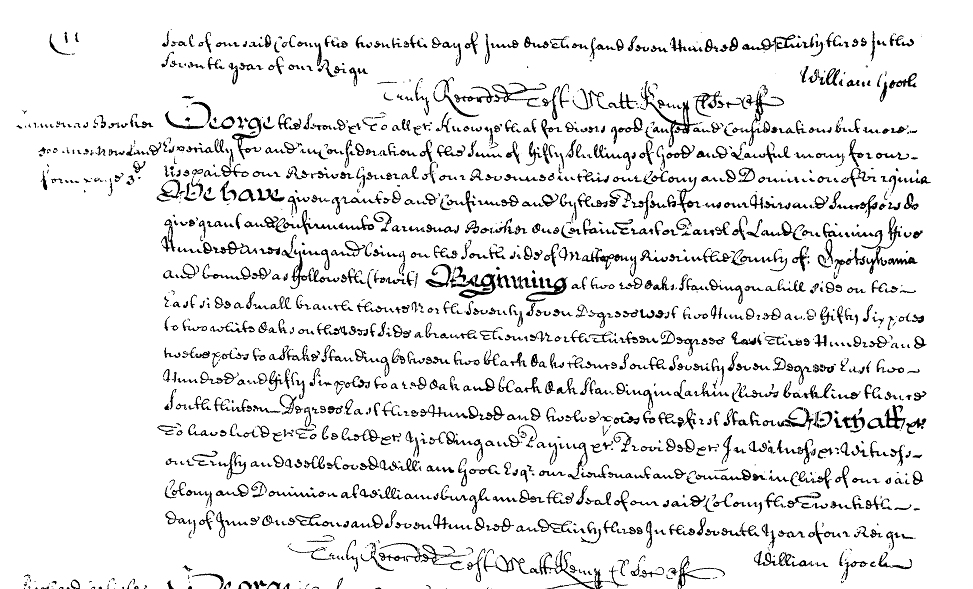 Seal of our said Colony the twentieth day of June One Thousand Seven Hundred and Thirty three In the
Seventh year of our Reign
William Gooch
Truly Recorded Test Matt: Kemp Cl Sec Off
Parmenas Bowker
500 Acres New Land
form page 3d
George the Second &c To all &c Know ye that for divers good Causes and Considerations but more
Especially for and in Consideration of the Sum of Fifty Shillings of Good and Lawful mony for our
Use paid to our Receiver General of our Revenues in this our Colony and Dominion of Virginia
We have given granted and Confirmed and by these Presents for us our Heirs and Successors do
give grant and Confirm unto Parmenas Bowker One Certain Tract or Parcel of Land Containing Five
Hundred Acres Lying and being on the South side of Mattapony River in the County of Spotsylvania
and bounded as Followeth (to wit) Beginning at two red Oaks Standing on a hill side on the
East side a Small branch thence North Seventy Seven Degrees West two Hundred and Fifty Six poles
to two white Oaks on the West Side a branch Thence North Thirteen Degrees East Three Hundred and
twelve poles to a Stake Standing between two black Oaks thence South Seventy Seven Degrees East two
Hundred and Fifty Six poles to a red Oak and black Oak Standing in Larkin Chew's back line thence
South thirteen Degrees East three Hundred and twelve poles to the first Station With all &c
To have hold &c To be held &c Yielding and Paying &c Provided &c In Witness &c Witness
our Trusty and Welbeloved William Gooch Esqr our Lieutenant and Comander in Chief of our said
Colony and Dominion at Williamsburgh under the Seal of our said Colony the Twentieth
day of June One Thousand Seven Hundred and Thirty three In the Seventh Year of our Reign
William Gooch
Truly Recorded Test Matt: Kemp Cl Sec Off
George